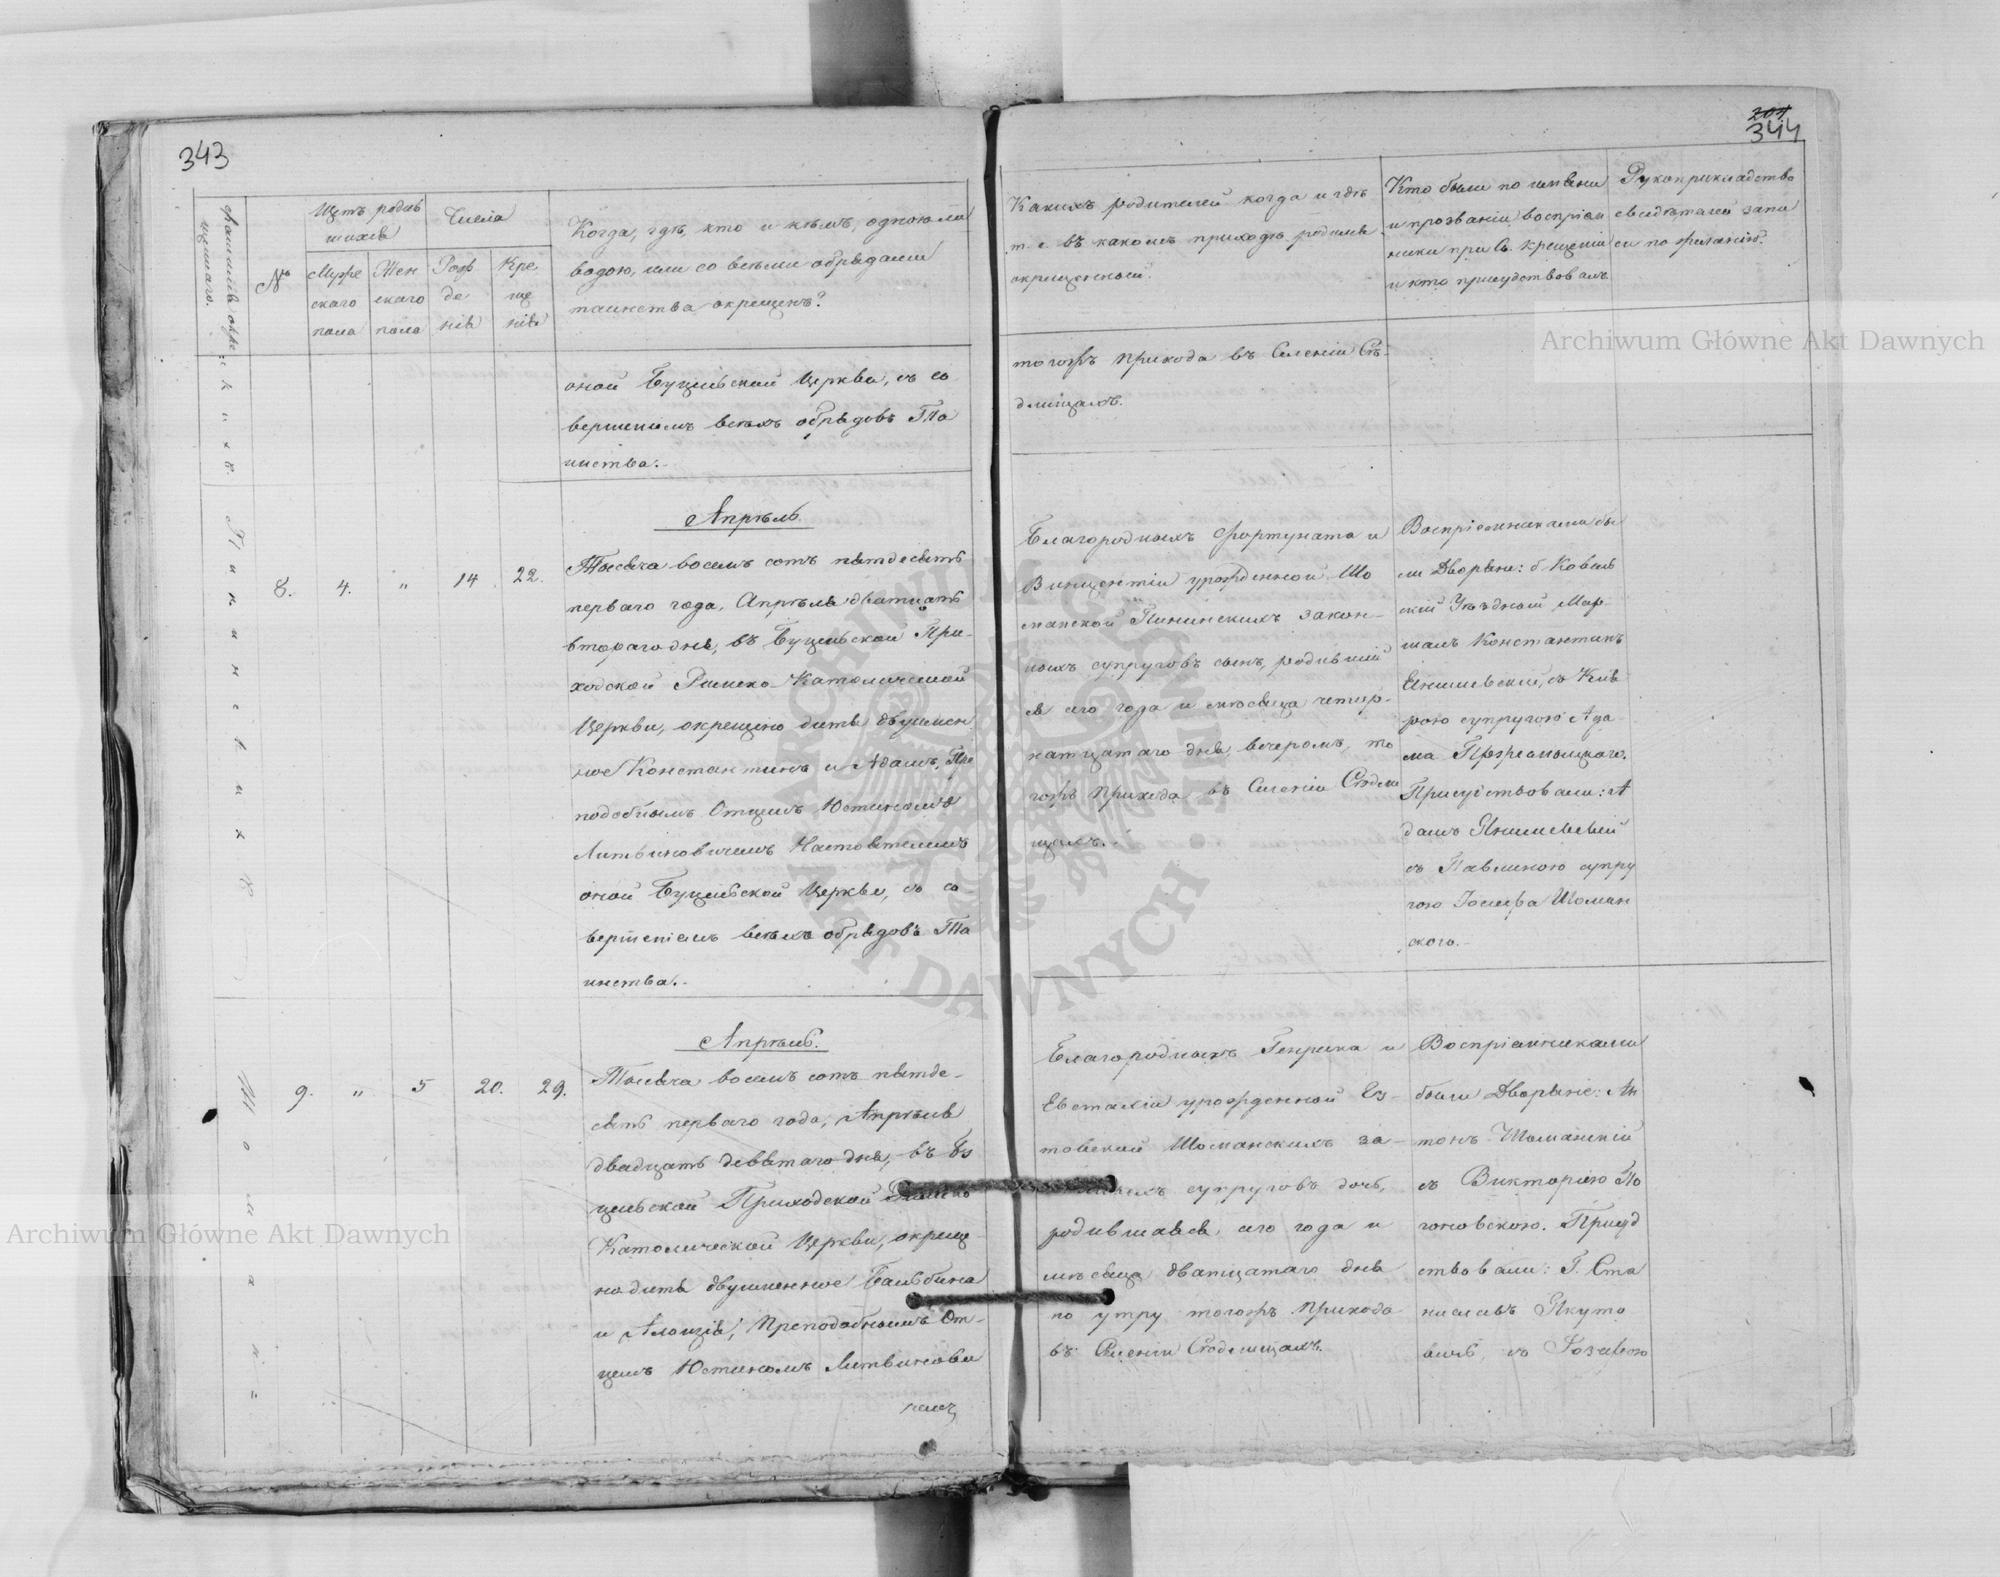 343
Фамилія окре
щеннаго.
№
Щетъ родив
шихся
Числа
Муже
скаго
пола
Жен
скаго
пола
Рож
де
нія
Кре
ще
нія
Когда, гдѣ, кто и кѣмъ, одною ли
водою, или со всѣми обрядами
таинства окрещенъ?
оной Буцинской Церкви, съ со
вершеніемъ всѣхъ обрядовъ Та
инства.
Апрѣль.
8.
4.
"
14
22.
Тысяча восемь сотъ пятдесятъ
перваго года, Апрѣля двадцать
втораго дня, въ Буцинской При-
ходской Римско-Католической
Церкви, окрещено дитя двуимен
ное Константинъ и Адамъ, Пре
подобнымъ Отцемъ Юстиномъ
Литвиновичемъ Настоятелемъ
оной Буцинской Церкви, съ со
вершеніемъ всѣхъ обрядовъ Та
инства.
Апрѣль.
9.
"
5
20.
29.
Тысяча восемь сотъ пятде-
сятъ перваго года, Апрѣля
двадцать девятаго дня, въ Бу
цинской Приходской Римско
Католической Церкви, окреще
но дитя двуименное Бальбина
и Алоизія, Преподобнымъ От-
цемъ Юстиномъ Литвинови
чемъ
344
Какихъ родителей когда и гдѣ
т. е. въ какомъ приходѣ родился
окрещенный.
Кто были по имени
и прозванію воспріем
ники при Св. Крещеніи
и кто присудствовалъ
Рукоприкладство
свидѣтелей запи
си по желанію.
тогожъ прихода въ Селеніи Сѣ-
длищахъ.
Благородныхъ Фортуната и
Винцентіи урожденной Шо
манской Пининскихъ закон-
ныхъ супруговъ сынъ, родившій
ся сего года и мѣсяца четыр-
натцатаго дня, вечеромъ, то
гожъ прихода въ Селеніи Сѣдли
щахъ.
Воспріемниками бы
ли Дворяне: б. Ковель
скій Уѣздный Мар
шалъ Константинъ
съ Кля
рою супругою Ада
ма
Присудствовали: А
дамъ Янишевскій
съ Павлиною супру
гою Іосифа Шоман
скаго.
Благородныхъ Генриха и
Евстахіи урожденной
Шоманскихъ за-
конныхъ супруговъ дочь,
родившаяся сего года и
мѣсяца двадцатаго дня
по утру тогожъ прихода
въ Селеніи Сѣдлищахъ.
Воспріемниками
были Дворяне: Ан
тонъ Шоманскій
съ Викторіею По
гоновскою. Присуд
ствовали: Г. Ста
ниславъ Якуто
вичъ, съ Іозефою
Archiwum Główne Akt Dawnych
Archiwum Główne Akt Dawnych
ARCHIWUM GŁÓWNE AKT DAWNYCH